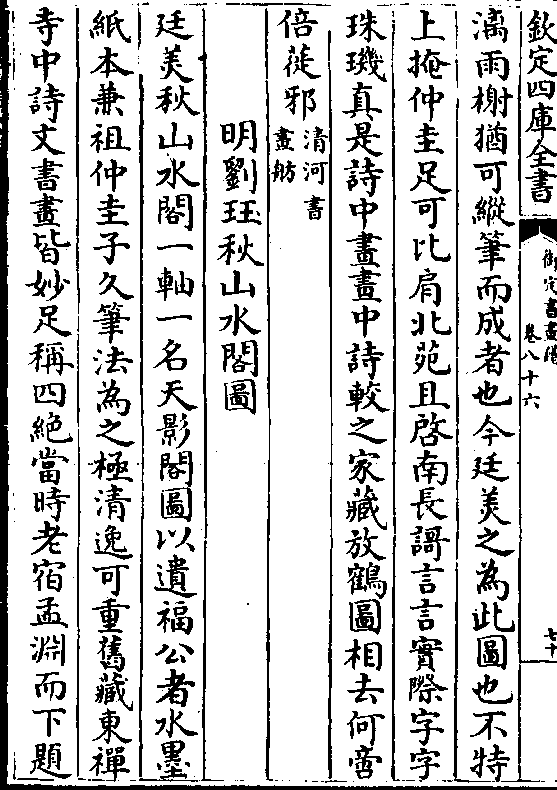 欽定四庫全書
御定書畫譜
卷八十六
七十
漓雨榭猶可縱筆而成者也今廷美之為此圖也不特
上掩仲圭足可比肩北苑且啓南長謌言言實際字字
珠璣真是詩中畫畫中詩較之家藏放鶴圖相去何啻
倍蓰邪清河書畫舫
明劉珏秋山水閣圖
廷美秋山水閣一軸一名天影閣圖以遺福公者水墨
紙本兼祖仲圭子久筆法為之極清逸可重舊藏東禪
寺中詩文書畫皆妙足稱四絶當時老宿孟淵而下題